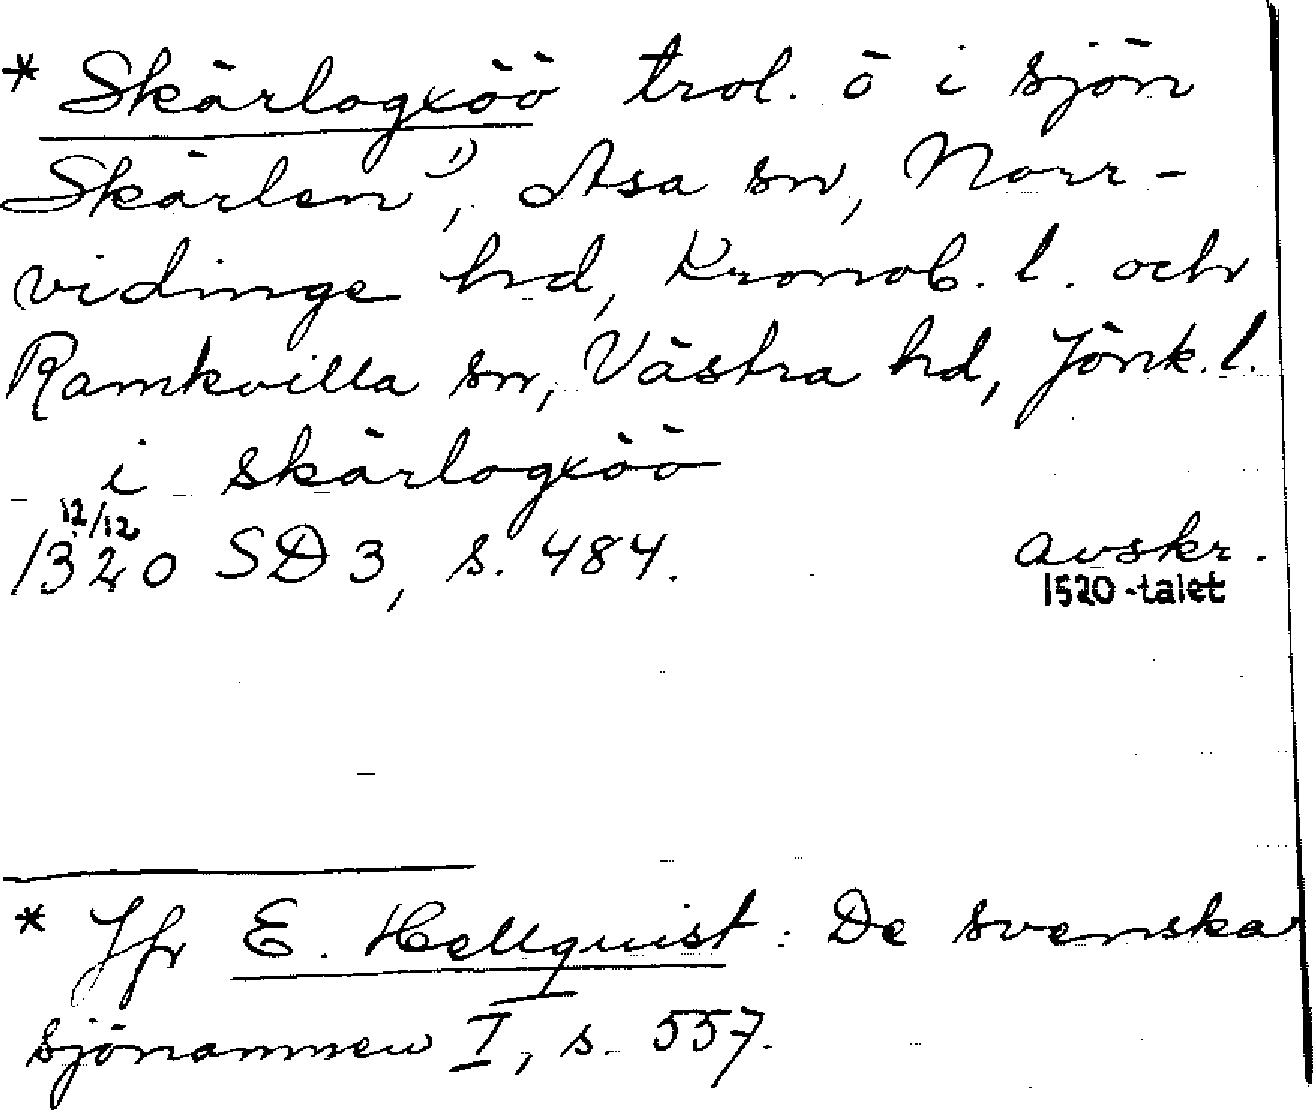 * Skärlogxöö trol. ö i sjön
Skärlen¹⁾, Asa sn, Norr-
vidinge hd, Kronob. l. och
Ramkvilla sn, Västra hd, Jönk. l.
i skärlogxöö
12/12
1320 SD 3, s. 484. avskr.
1520-talet
* Jfr E. Hellquist: De svenska
sjönamnen I, s. 557.